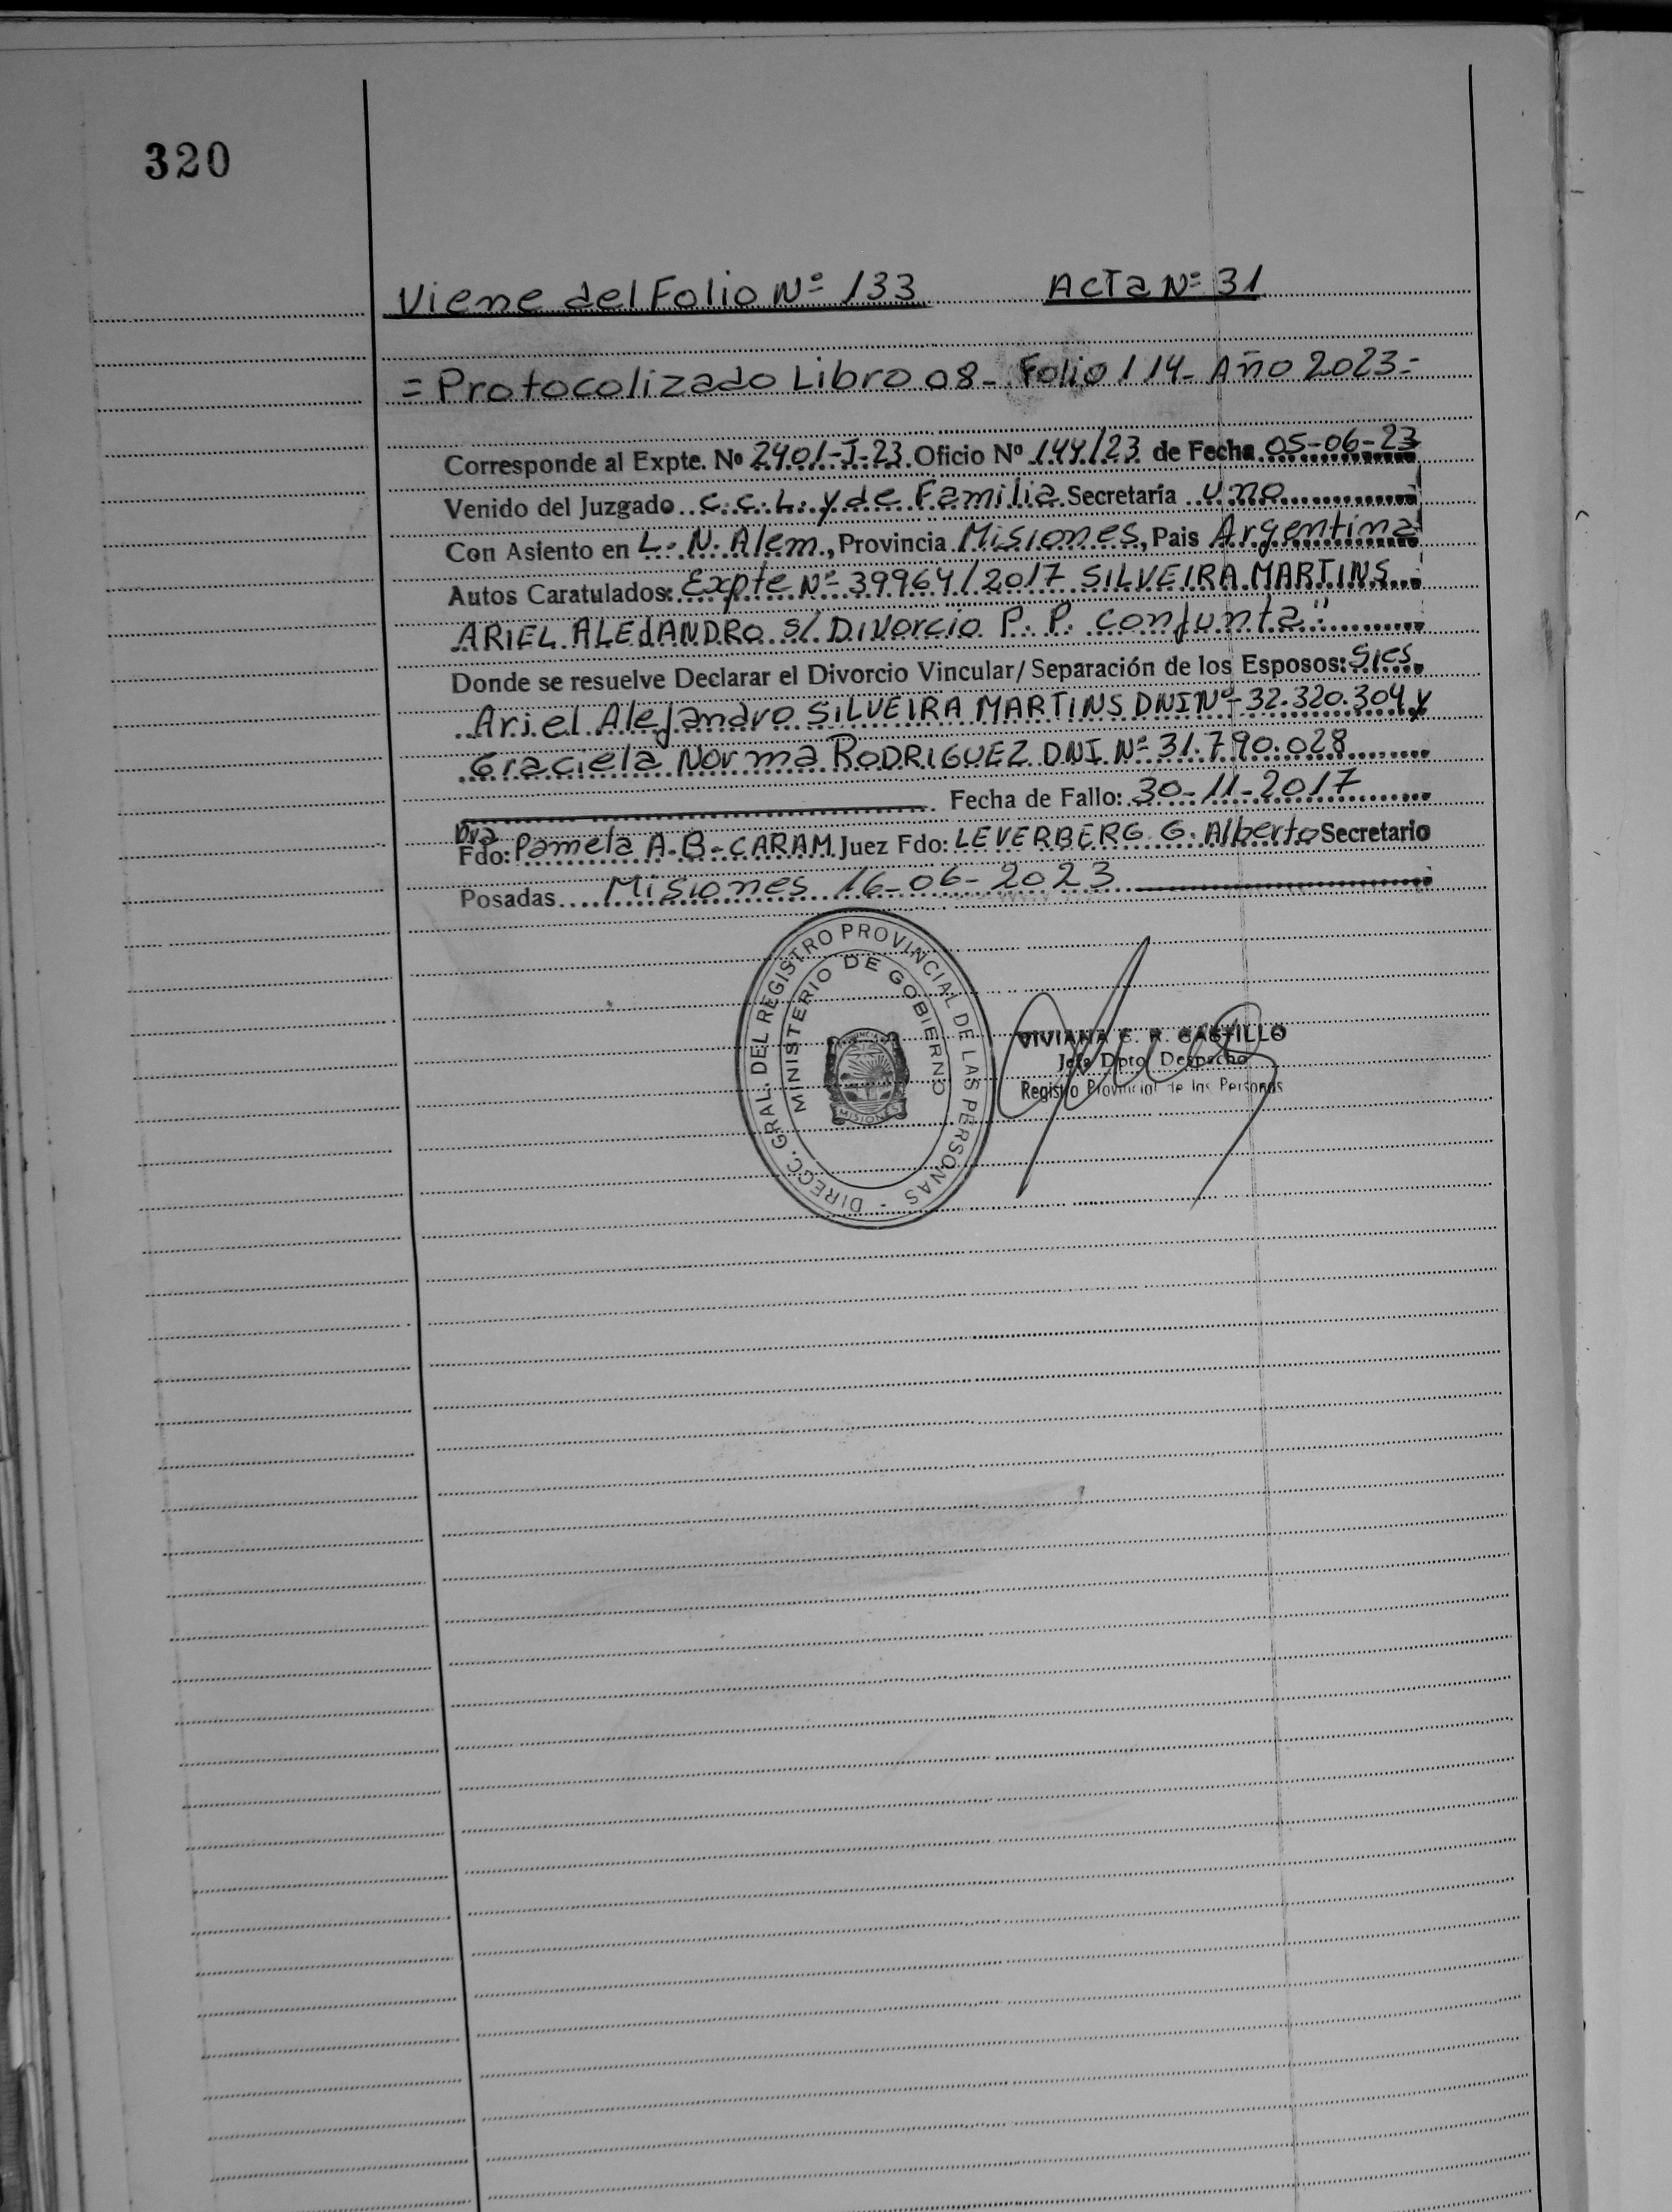 320
Viene del Folio Nº 133 Acta Nº 31
= Protocolizado Libro 08 - Folio 114 - Año 2023 =
Corresponde al Expte. Nº 2401-J-23 Oficio Nº 144/23 de Fecha 05-06-23
Venido del Juzgado C.C.L. y de Familia Secretaría uno
Con Asiento en L. N. Alem, Provincia Misiones, Pais Argentina
Autos Caratulados: Expte Nº 39964/2017 SILVEIRA MARTINS
ARIEL ALEJANDRO s/ Divorcio P. P. conjunta"
Donde se resuelve Declarar el Divorcio Vincular/ Separación de los Esposos: Sres
Ariel Alejandro SILVEIRA MARTINS DNI Nº 32.320.304 y
Graciela Norma RODRIGUEZ DNI. Nº 31.790.028
Fecha de Fallo: 30-11-2017
Dra
Fdo: Pamela A. B. CARAM Juez Fdo: LEVERBERG G. Alberto Secretario
Posadas Misiones 16-06-2023
DIRECC. GRAL. DEL REGISTRO PROVINCIAL DE LAS PERSONAS -
MINISTERIO DE GOBIERNO
PROVINCIA
MISIONES
VIVIANA C. R. CASTILLO
Jefe Dpto. Despacho
Registro Provincial de las Personas